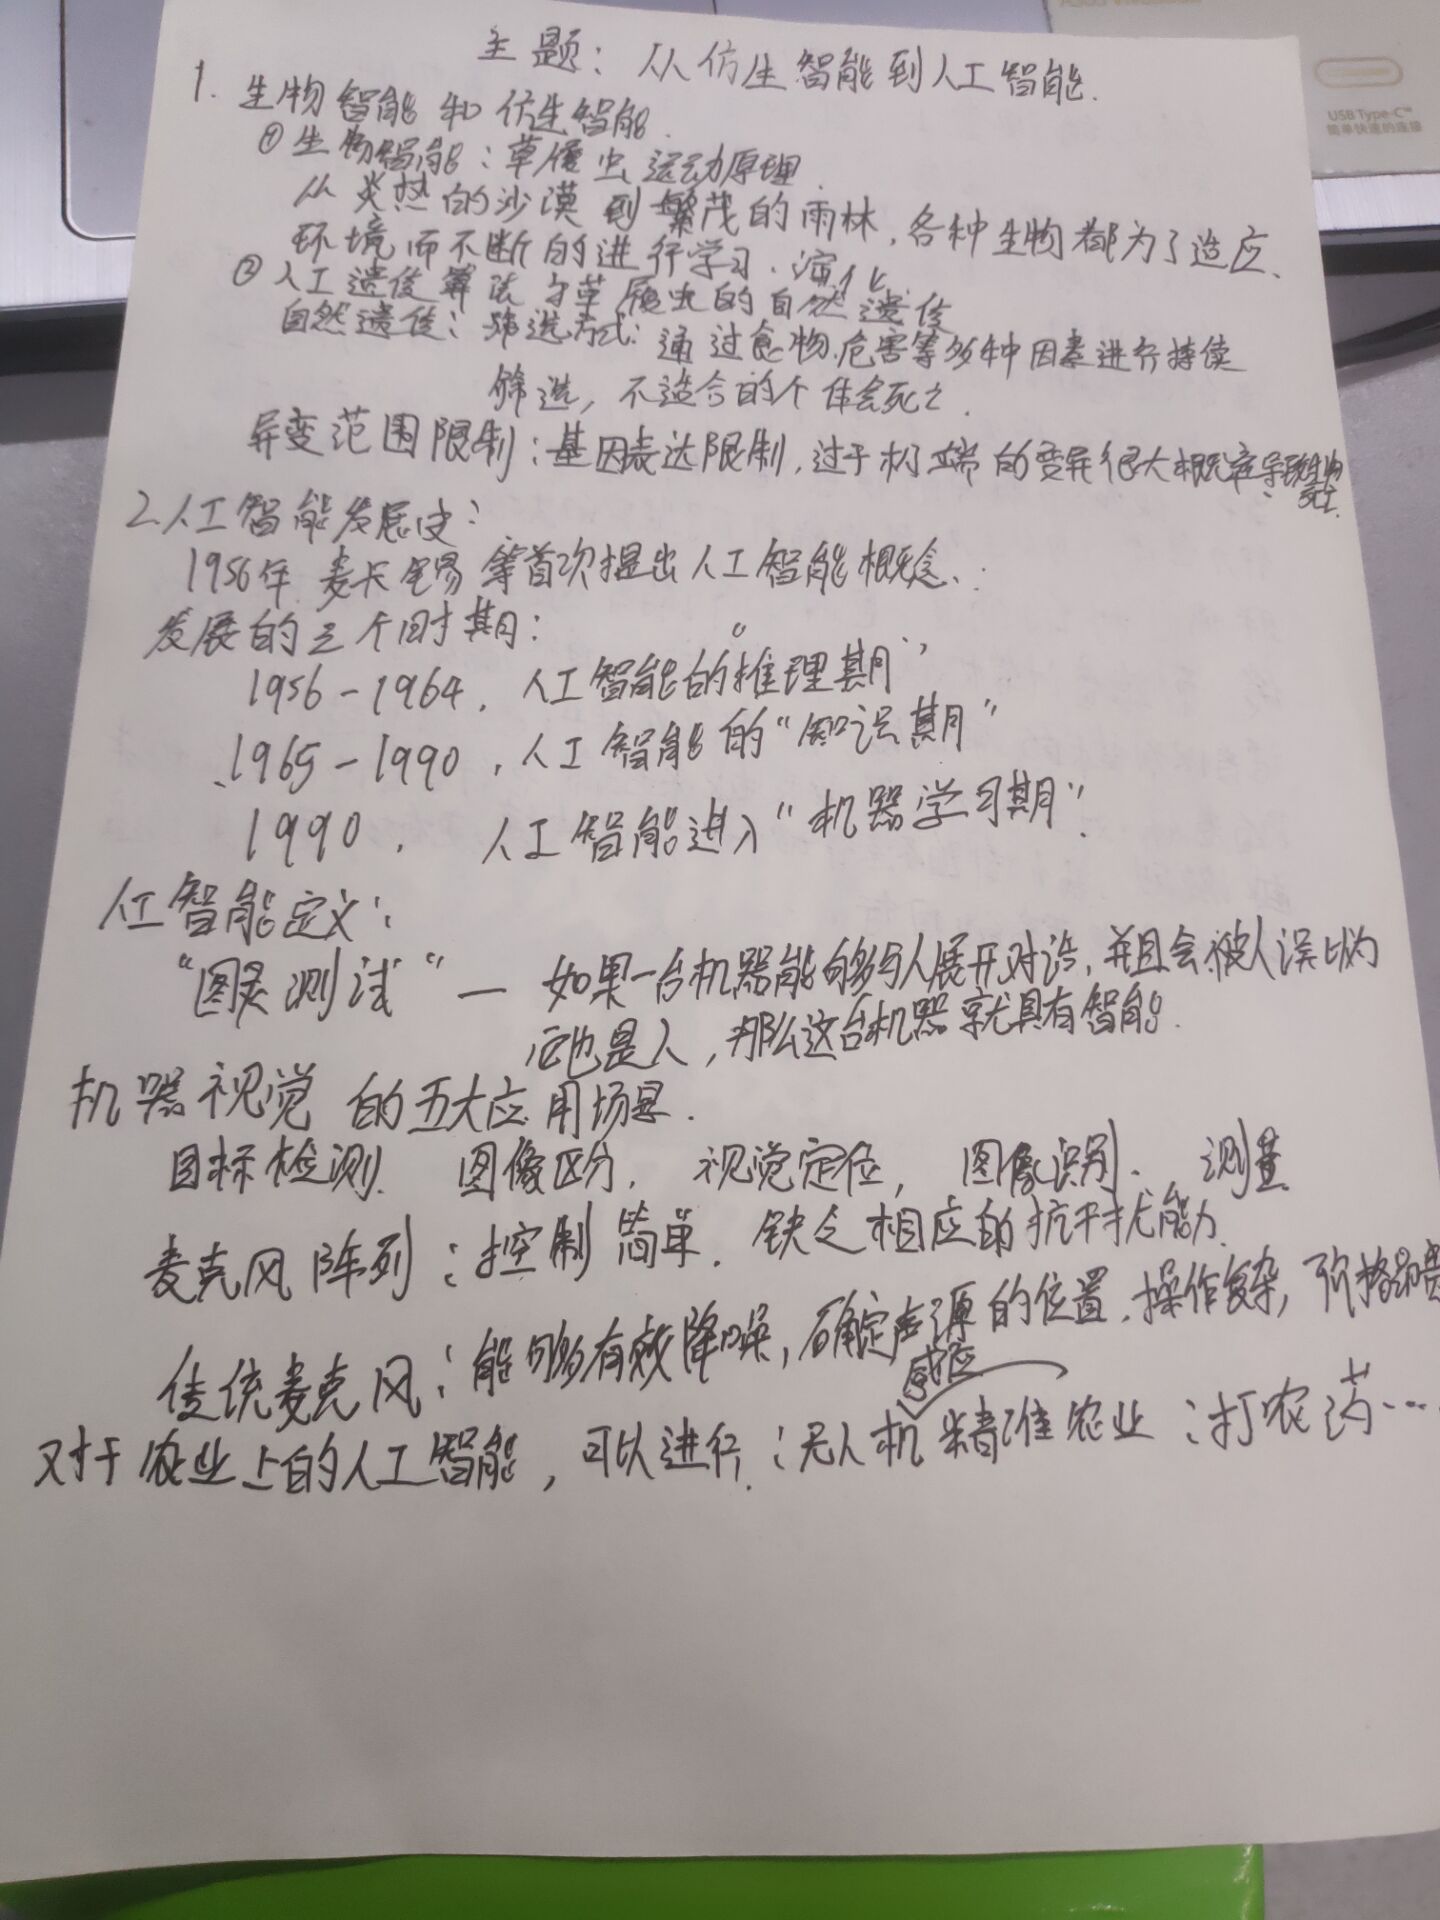 主题：从仿生智能到人工智能.
USB Type-C™
简单快速的连接
1. 生物智能和仿生智能.
① 生物智能：草履虫运动原理.
从炎热的沙漠到繁茂的雨林，各种生物都为了适应.
环境而不断的进行学习.演化.
② 人工遗传算法与草履虫的自然遗传
自然遗传：筛选方式：通过食物.危害等多种因素进行持续
筛选，不适合的个体会死亡.
异变范围限制：基因表达限制，过于极端的变异很大概率导致生物
死亡.
2.人工智能发展史：
1956年 麦卡锡等首次提出人工智能概念.
发展的三个时期：
1956-1964，人工智能的“推理期”
1965-1990，人工智能的“知识期”
1990， 人工智能进入“机器学习期”.
人工智能定义：
“图灵测试”— 如果一台机器能够与人展开对话，并且会被人误以为
它也是人，那么这台机器就具有智能.
机器视觉的五大应用场景.
目标检测. 图像区分， 视觉定位， 图像识别. 测量
麦克风阵列：控制简单. 缺乏相应的抗干扰能力.
传统麦克风：能够有效降噪，确定声源的位置.操作复杂，价格昂贵
感应
对于农业上的人工智能，可以进行：无人机精准农业：打农药…